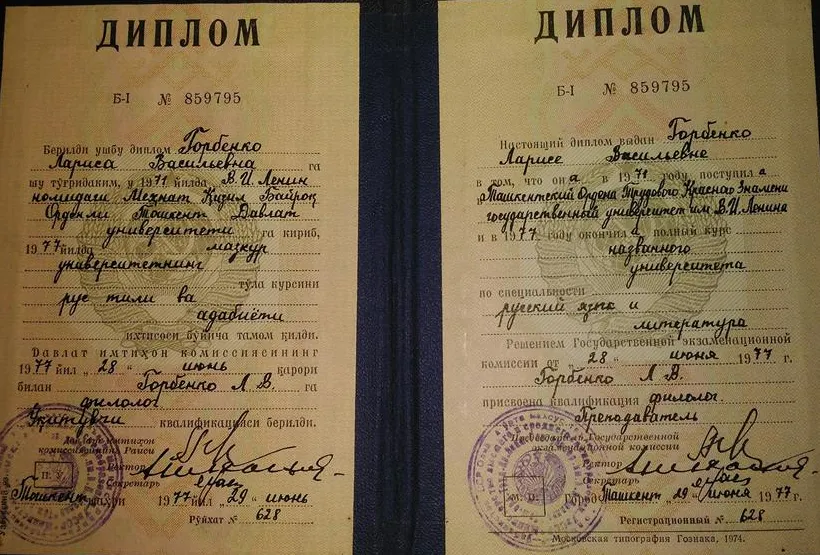 ДИПЛОМ
Б-I № 859795
Берилди ушбу диплом Горбенко
Лариса Васильевна га
шу тўғридаким, у 1971 йилда В.И. Ленин
номидаги Меҳнат Қизил Байроқ
Орденли Тошкент Давлат
университети га кириб,
1977 йилда мазкур
университетнинг
тўла курсини
рус тили ва
адабиёти
ихтисоси бўйича тамом қилди.
Давлат имтиҳон комиссиясининг
1977 йил „28“ июнь қарори
билан Горбенко Л. В. га
филолог
Ўқитувчи квалификацияси берилди.
Давлат имтиҳон
комиссияси Раиси
Ректор
Секретарь
М. Ў.
Тошкент шаҳри 1977 йил „29“ июнь
Рўйхат № 628
ДИПЛОМ
Б-I № 859795
Настоящий диплом выдан Горбенко
Ларисе Васильевне
в том, что она в 1971 году поступила
в Ташкентский Ордена Трудового Красного Знамени
государственный университет им. В.И. Ленина
и в 1977 году окончила полный курс
названного
университета
по специальности
русский язык и
литература
Решением Государственной экзаменационной
комиссии от „28“ июня 1977 г.
Горбенко Л. В.
присвоена квалификация филолог
Преподаватель
Председатель Государственной
экзаменационной комиссии
Ректор
Секретарь
М. П.
Город Ташкент „29“ июня 1977 г.
Регистрационный № 628
Московская типография Гознака, 1974.